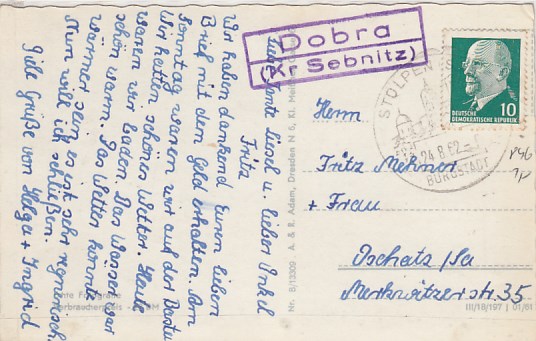 Liebe Tante Liesel u. lieber Onkel
Fritz
Wir haben dankend Euren lieben
Brief mit dem Geld erhalten. Am
Sonntag waren wir auf der Bastei
Wir hatten schönes Wetter. Heute
waren wir baden. Das Wasser war
schön warm. Das Wetter könnte
wärmer sein es ist sehr regnerisch.
Nun will ich schließen.
Gute Grüße von Helga + Ingrid
Dobra
(Kr Sebnitz)
STOLPEN
24.8.62
BURGSTADT
10
DEUTSCHE
DEMOKRATISCHE REPUBLIK
Herrn
Fritz Mehner
+ Frau
Oschatz/Sa
Merkwitzer str. 35
Nr. B/13309 A. & R. Adam, Dresden N 6, Kl.
Echte Fotografie
Verbraucherpreis
III/18/197 01/61